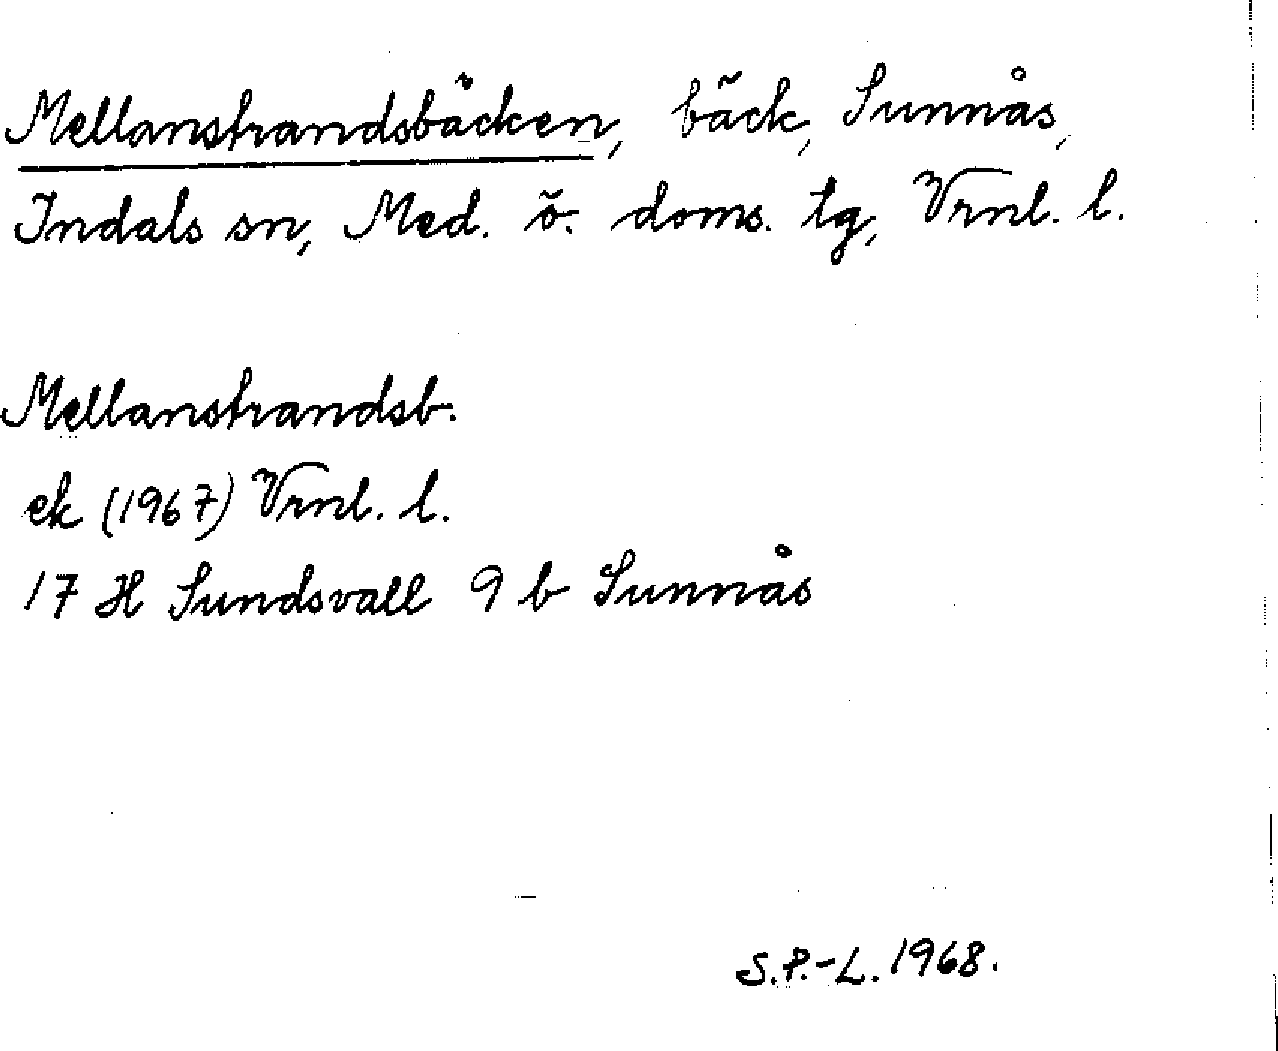 Mellanstrandsbäcken, bäck, Sunnås,
Indals sn, Med. ö. doms. tg, Vrnl. l.
Mellanstrandsb.
ek (1967) Vrnl. l.
17 H Sundsvall 9 b Sunnås
S.P.-L. 1968.